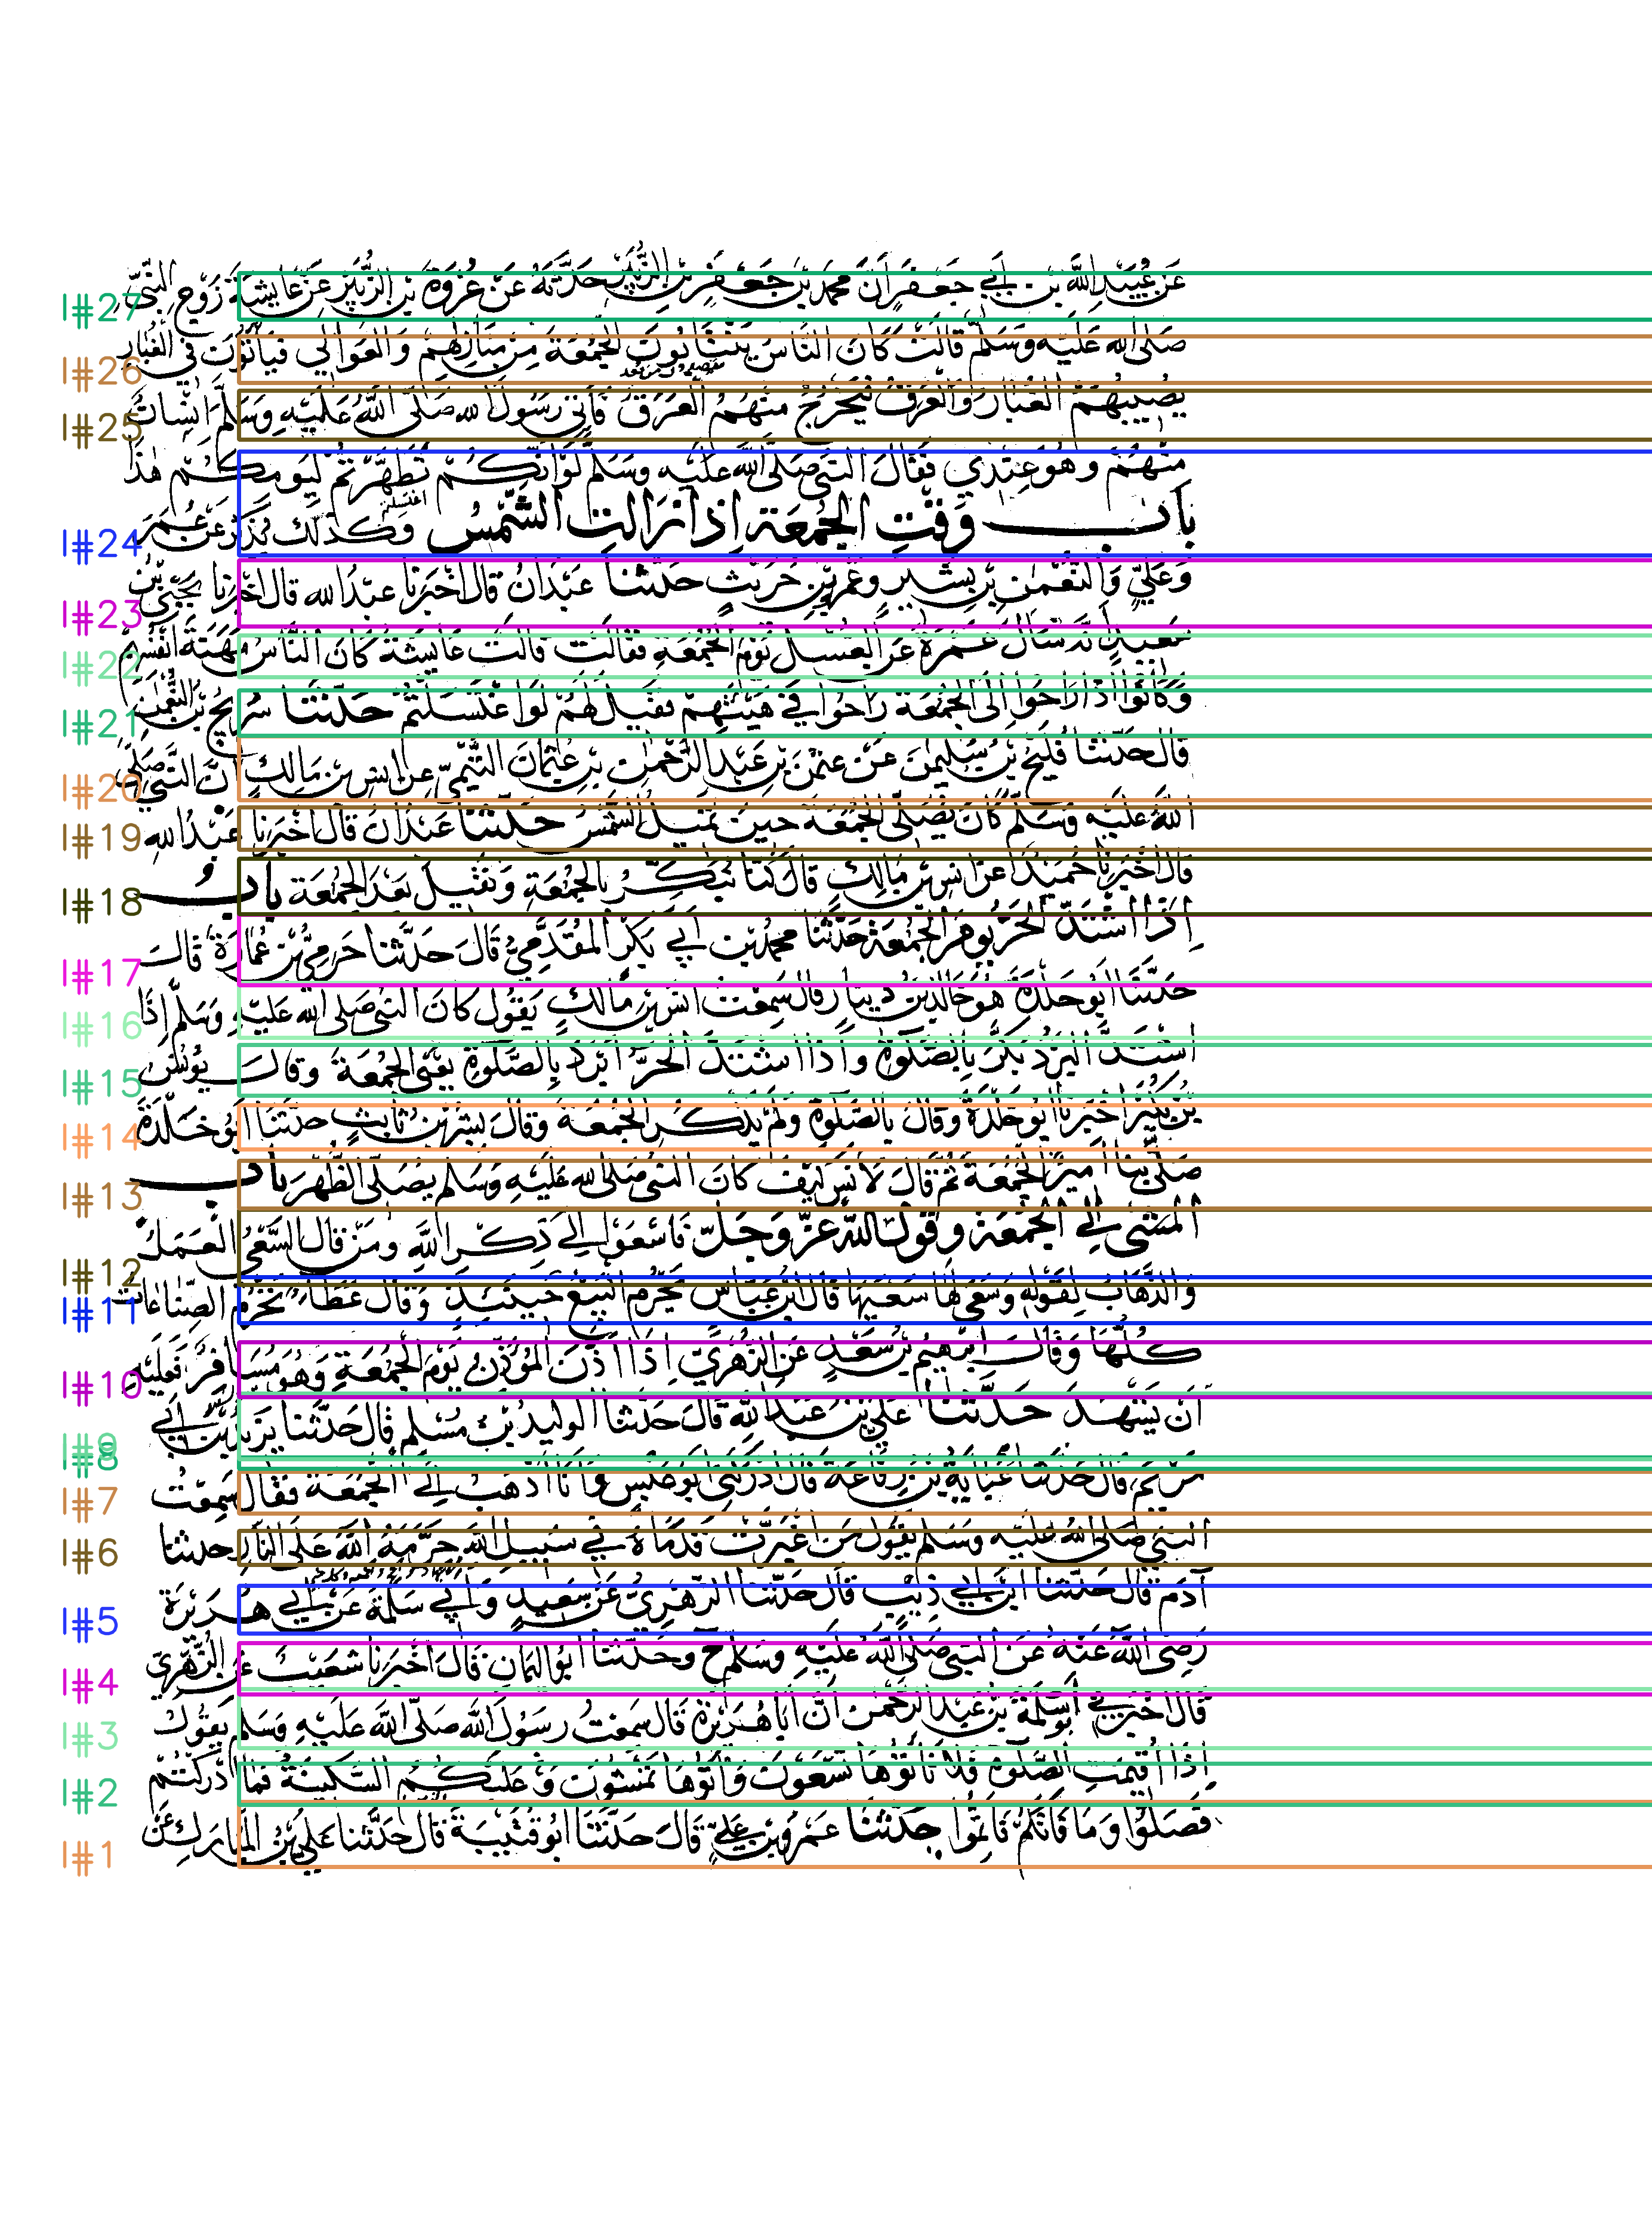 عَنْ عُبَيْدِ اللهِ بنِ أَبي جَعْفَرٍ أَنَّ محمدَ بنَ جَعْفَرِ بنِ الزُّبَيْرِ حَدَّثَهُ عَنْ عُرْوَةَ بنِ الزُّبَيْرِ عَنْ عَايِشَةَ زَوْجِ النَّبِيِّ
صَلَّى الله عَلَيْهِ وَسَلَّمَ قَالَتْ كَانَ النَّاسُ يَنْتَابُونَ الجُمُعَةَ مِنْ مَنَازِلِهِمْ وَالعَوَالِي فَيَأْتُونَ فِي الغُبَارِ
يُصِيبُهُمْ الغُبَارُ وَالْعَرَقُ فَيَخْرُجُ مِنْهُمُ الْعَرَقُ فَأَتَى رَسُولَ الله صَلَّى اللهُ عَلَيْهِ وَسَلَّمَ إِنْسَانٌ
مِنْهُمْ وَهُوَ عِنْدِي فَقَالَ النَّبِيُّ صَلَّى الله عَلَيْهِ وَسَلَّمَ لَوْ أَنَّكُمْ تَطَهَّرْتُمْ لِيَوْمِكُمْ هَذَا
بَابُ وَقْتِ الجُمُعَةِ إِذَا زَالَتِ الشَّمْسُ وَكَذَلِكَ يُذْكَرُ عَنْ عُمَرَ
وَعَلِيٍّ وَالنُّعْمٰنِ بنِ بَشِيرٍ وَعَمْرِو بنِ حُرَيْثٍ حَدَّثَنَا عَبْدَانُ قَالَ أَخْبَرَنَا عَبْدُ الله قَالَ أَخْبَرَنَا يَحْيَى بْنُ
سَعِيدٍ أَنَّهُ سَأَلَ عَمْرَةَ عَنِ الْغُسْلِ يَوْمَ الجُمُعَةِ فَقَالَتْ قَالَتْ عَايِشَةُ كَانَ النَّاسُ مَهَنَةَ أَنْفُسِهِمْ
وَكَانُوا إِذَا رَاحُوا إِلَى الجُمُعَةِ رَاحُوا فِي هَيْئَتِهِمْ فَقِيلَ لَهُمْ لَوِ اغْتَسَلْتُمْ حَدَّثَنَا سُرَيْجُ بْنُ النُّعْمٰنِ
قَالَ حَدَّثَنَا فُلَيْحُ بْنُ سُلَيْمٰنَ عَنْ عُثْمٰنَ بْنِ عَبْدِ الرَّحْمٰنِ بْنِ عُثْمَانَ التَّيْمِيِّ عَنْ أَنَسِ بنِ مَالِكٍ أَنَّ النَّبِيَّ صَلَّى
اللهُ عَلَيْهِ وَسَلَّمَ كَانَ يُصَلِّي الجُمُعَةَ حِينَ تَمِيلُ الشَّمْسُ حَدَّثَنَا عَبْدَانُ قَالَ أَخْبَرَنَا عَبْدُ اللهِ
قَالَ أَخْبَرَنَا حُمَيْدٌ عَنْ أَنَسِ بْنِ مَالِكٍ قَالَ كُنَّا نُبَكِّرُ بِالجُمُعَةِ وَنَقِيلُ بَعْدَ الجُمُعَةِ بَابُ
إِذَا اشْتَدَّ الْحَرُّ يَوْمَ الجُمُعَةِ حَدَّثَنَا محمدُ بن أَبِي بَكْرٍ المُقَدَّمِيُّ قَالَ حَدَّثَنَا حَرَمِيُّ بْنُ عُمَارَةَ قَالَ
حَدَّثَنَا أَبُو خَلْدَةَ هُوَ خَالِدُ بنُ دِينَارٍ قَالَ سَمِعْتُ أَنَسَ بْنَ مَالِكٍ يَقُولُ كَانَ النَّبِيُّ صَلَّى الله عَلَيْهِ وَسَلَّمَ إِذَا
اشْتَدَّ البَرْدُ بَكَّرَ بِالصَّلَوٰةِ وَإِذَا اشْتَدَّ الحَرُّ أَبْرَدَ بِالصَّلَوٰةِ يَعْنِي الجُمُعَةَ وَقَالَ يُونُسُ
بْنُ بُكَيْرٍ أَخْبَرَنَا أَبُو خَلْدَةَ وَقَالَ بِالصَّلَوٰةِ وَلَمْ يَذْكُرِ الجُمُعَةَ وَقَالَ بِشْرُ بْنُ ثَابِتٍ حَدَّثَنَا أَبُو خَلْدَةَ
صَلَّى بِنَا أَمِيرٌ الجُمُعَةَ ثُمَّ قَالَ لِأَنَسٍ كَيْفَ كَانَ النَّبِيُّ صَلَّى الله عَلَيْهِ وَسَلَّمَ يُصَلِّي الظُّهْرَ بَابُ
الْمَشْيِ إِلَى الجُمُعَةِ وَقَوْلِ اللهِ عَزَّ وَجَلَّ فَاسْعَوْا إِلَى ذِكْرِ اللَّهِ وَمَنْ قَالَ السَّعْيُ الْعَمَلُ
وَالذَّهَابُ لِقَوْلِهِ وَسَعَى لَهَا سَعْيَهَا قَالَ ابْنُ عَبَّاسٍ يَحْرُمُ الْبَيْعُ حِينَئِذٍ وَقَالَ عَطَاءٌ تَحْرُمُ الصِّنَاعَاتُ
كُلُّهَا وَقَالَ إِبْرَهِيمُ بْنُ سَعْدٍ عَنِ الزُّهْرِيِّ إِذَا أَذَّنَ الْمُؤَذِّنُ يَوْمَ الجُمُعَةِ وَهُوَ مُسَافِرٌ فَعَلَيْهِ
أَنْ يَشْهَدَ حَدَّثَنَا عَلِيُّ بْنُ عَبْدِ اللهِ قَالَ حَدَّثَنَا الْوَلِيدُ بْنُ مُسْلِمٍ قَالَ حَدَّثَنَا يَزِيدُ بْنُ أَبِي
مَرْيَمَ قَالَ حَدَّثَنَا عَبَايَةُ بْنُ رِفَاعَةَ قَالَ أَدْرَكَنِي أَبُو عَبْسٍ وَأَنَا أَذْهَبُ إِلَى الجُمُعَةِ فَقَالَ سَمِعْتُ
النَّبِيَّ صَلَّى اللهُ عَلَيْهِ وَسَلَّمَ يَقُولُ مَنِ اغْبَرَّتْ قَدَمَاهُ فِي سَبِيلِ اللهِ حَرَّمَهُ اللهُ عَلَى النَّارِ حدثنا
آدَمُ قَالَ حَدَّثَنَا ابْنُ أَبِي ذِيبٍ قَالَ حَدَّثَنَا الزُّهْرِيُّ عَنْ سَعِيدٍ وَأَبِي سَلَمَةَ عَنْ أَبِي هُرَيْرَةَ
رَضِيَ اللهُ عَنْهُ عَنِ النَّبِيِّ صَلَّى اللهُ عَلَيْهِ وَسَلَّمَ ح وَحَدَّثَنَا أَبُو الْيَمَانِ قَالَ أَخْبَرَنَا شُعَيْبٌ عَنِ الزُّهْرِيِّ
قَالَ أَخْبَرَنِي أَبُو سَلَمَةَ بْنُ عَبْدِ الرَّحْمٰنِ أَنَّ أَبَا هُرَيْرَةَ قَالَ سَمِعْتُ رَسُولَ اللهِ صَلَّى اللهُ عَلَيْهِ وَسَلَّمَ يَقُولُ
إِذَا أُقِيمَتِ الصَّلَوٰةُ فَلَا تَأْتُوهَا تَسْعَوْنَ وَأْتُوهَا تَمْشُونَ وَعَلَيْكُمُ السَّكِينَةُ فَمَا أَدْرَكْتُمْ
فَصَلُّوا وَمَا فَاتَكُمْ فَأَتِمُّوا حَدَّثَنَا عَمْرُو بْنُ عَلِيٍّ قَالَ حَدَّثَنَا أَبُو قُتَيْبَةَ قَالَ حَدَّثَنَا عَلِيُّ بْنُ الْمُبَارَكِ عَنْ
l#27
l#26
l#25
l#24
l#23
l#22
l#21
l#20
l#19
l#18
l#17
l#16
l#15
l#14
l#13
l#12
l#11
l#10
l#9
l#8
l#7
l#6
l#5
l#4
l#3
l#2
l#1